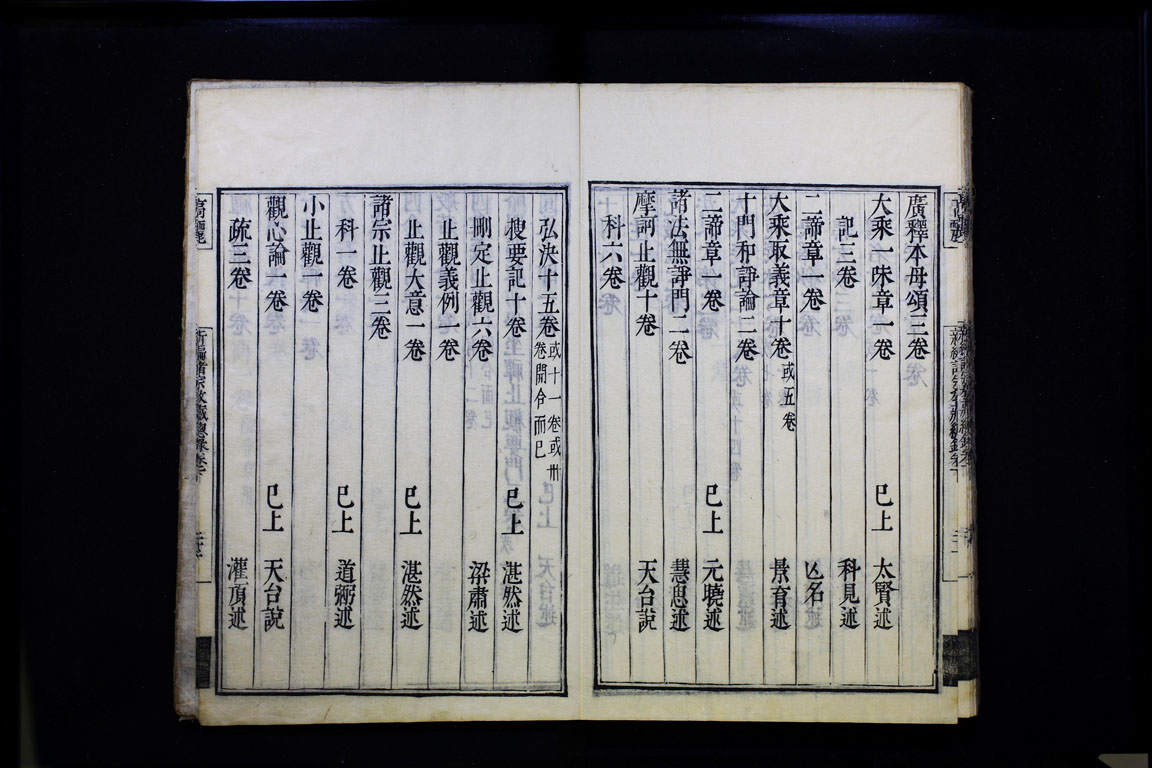 廣釋本母頌三卷
大乘一味章一卷 已上 太賢述
記三卷 科見述
二諦章一卷 亾名
大乘取義章十卷 或五卷 景育述
十門和諍論二卷
二諦章一卷 已上 元曉述
諸法無諍門二卷 慧思述
摩訶止觀十卷 天台說
科六卷
弘決十五卷 或十一卷或卅卷開合而已
搜要記十卷 已上 湛然述
刪定止觀六卷 梁肅述
止觀義例一卷
止觀大意一卷 已上 湛然述
諸宗止觀三卷
科一卷 已上 道弼述
小止觀一卷
觀心論一卷 已上 天台說
疏三卷 灌頂述
新編諸宗教藏總錄卷下